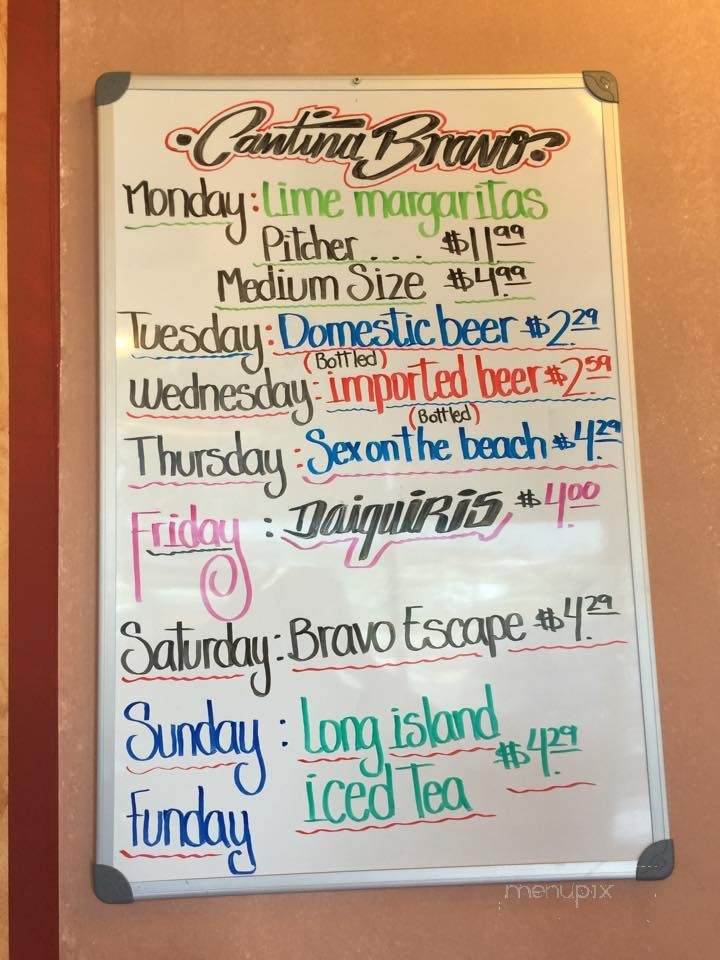 Cantina Bravo
Monday: Lime margaritas
Pitcher . . . $11.99
Medium Size $4.99
Tuesday: Domestic beer $2.29
(Bottled)
Wednesday: imported beer $2.59
(Bottled)
Thursday: Sex on the beach $4.29
Friday : Daiquiris $4.00
Saturday: Bravo Escape $4.29
Sunday : Long island
Funday iced Tea $4.29
menupix